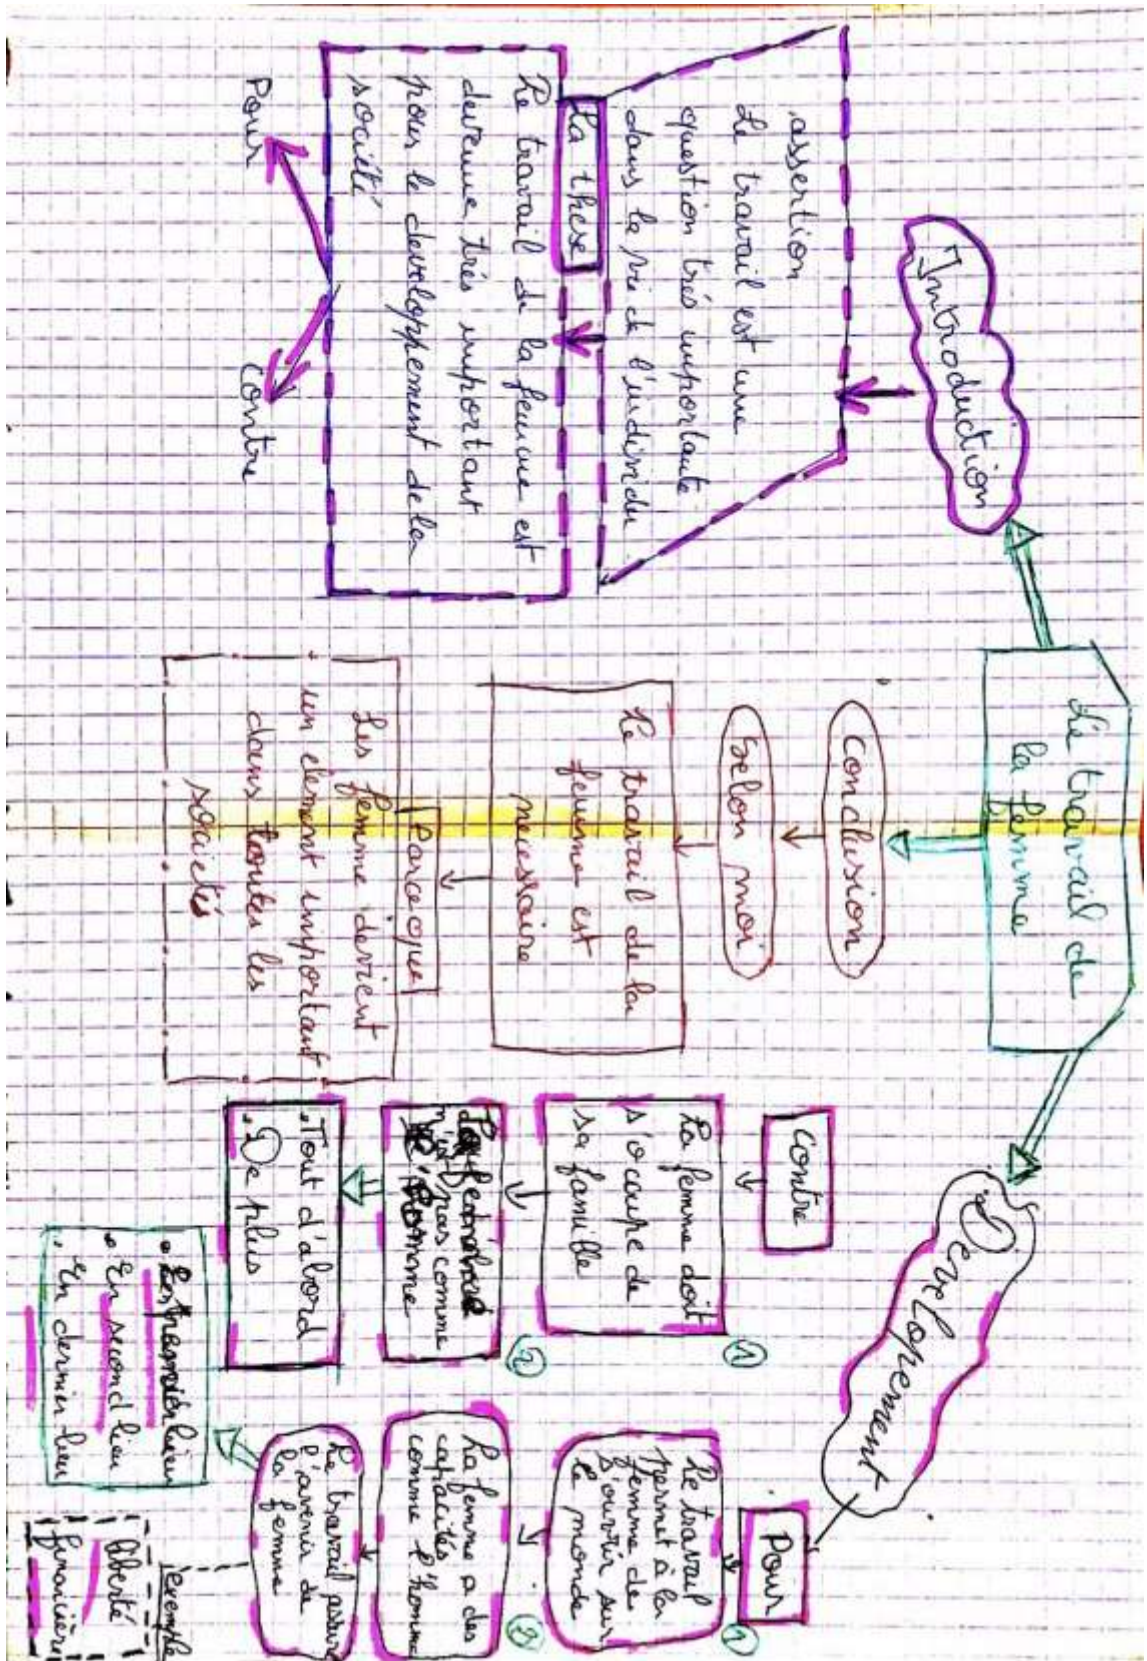 Le travail de
la femme
Introduction
assertion
Le travail est une
question très importante
dans la vie de l'individu
La thèse
Le travail de la femme est
devenue très important
pour le developpement de la
société
Pour
contre
conclusion
Selon moi
Le travail de la
femme est
necessaire
Parceque
Les femme devient
un élement important
dans toutes les
sociétés
Développement
contre
La femme doit
s'occupe de
sa famille
1
n'a pas comme
l'homme
2
. Tout d'abord
. De plus
Pour
1
Le travail
permet à la
femme de
s'ouvrir sur
le monde
2
La femme a des
capacités
comme l'homme
Le travail assure
l'avenir de
la femme
• En premier lieu
• En second lieu
• En dernier lieu
exemple
liberté
financière